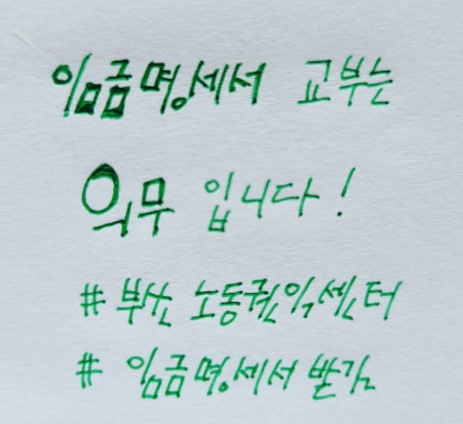 임금명세서 교부는
의무 입니다!
# 부산 노동권익센터
# 임금명세서 발급